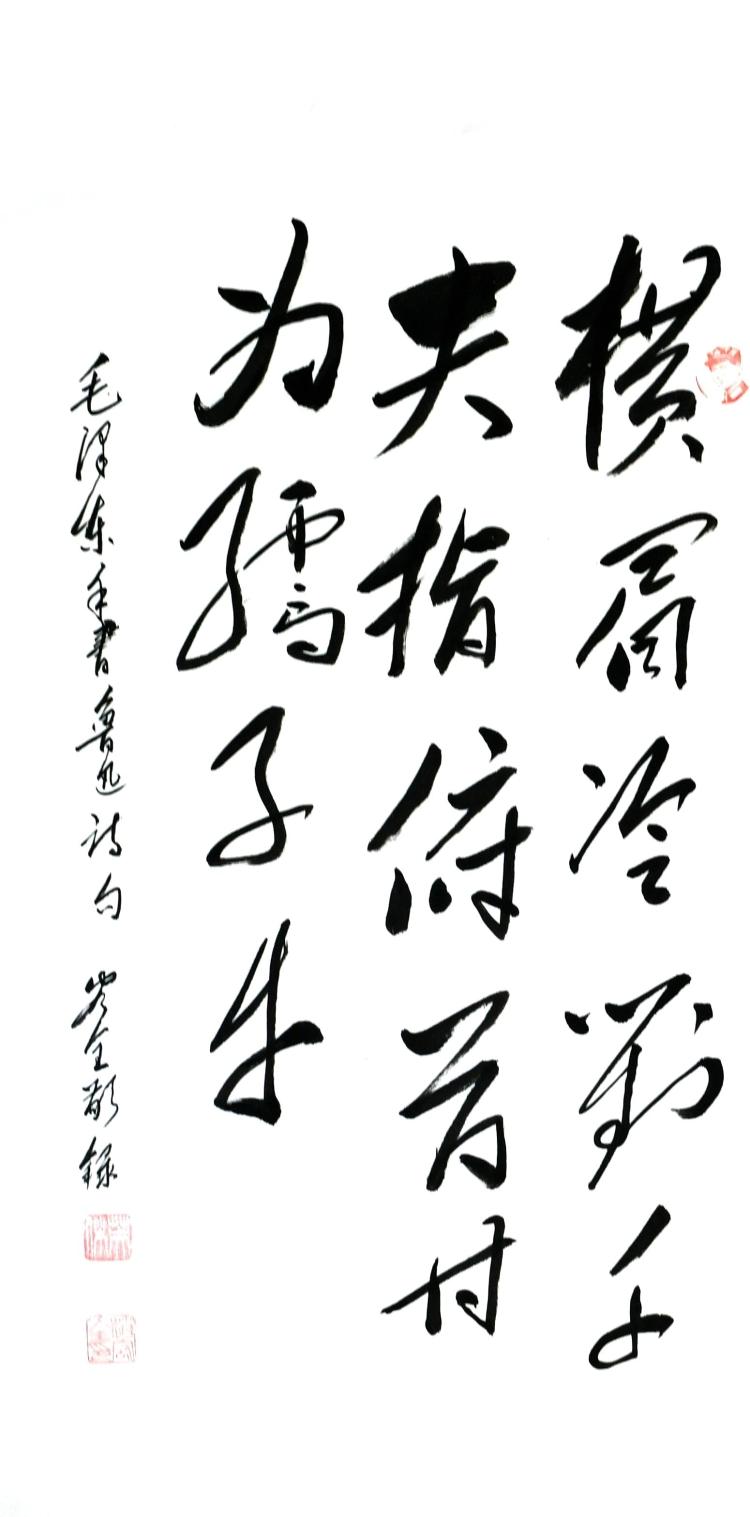 横眉冷對千
夫指俯首甘
为孺子牛
毛泽东手書鲁迅诗句 岑全錄